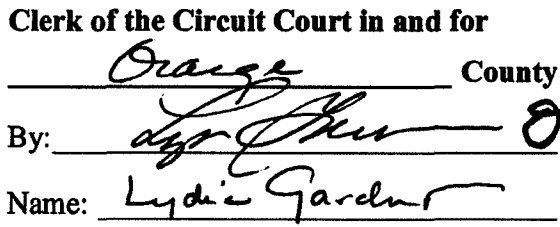 Clerk of the Circuit Court in and for
Orange County
By:
Name: Lydia Gardner